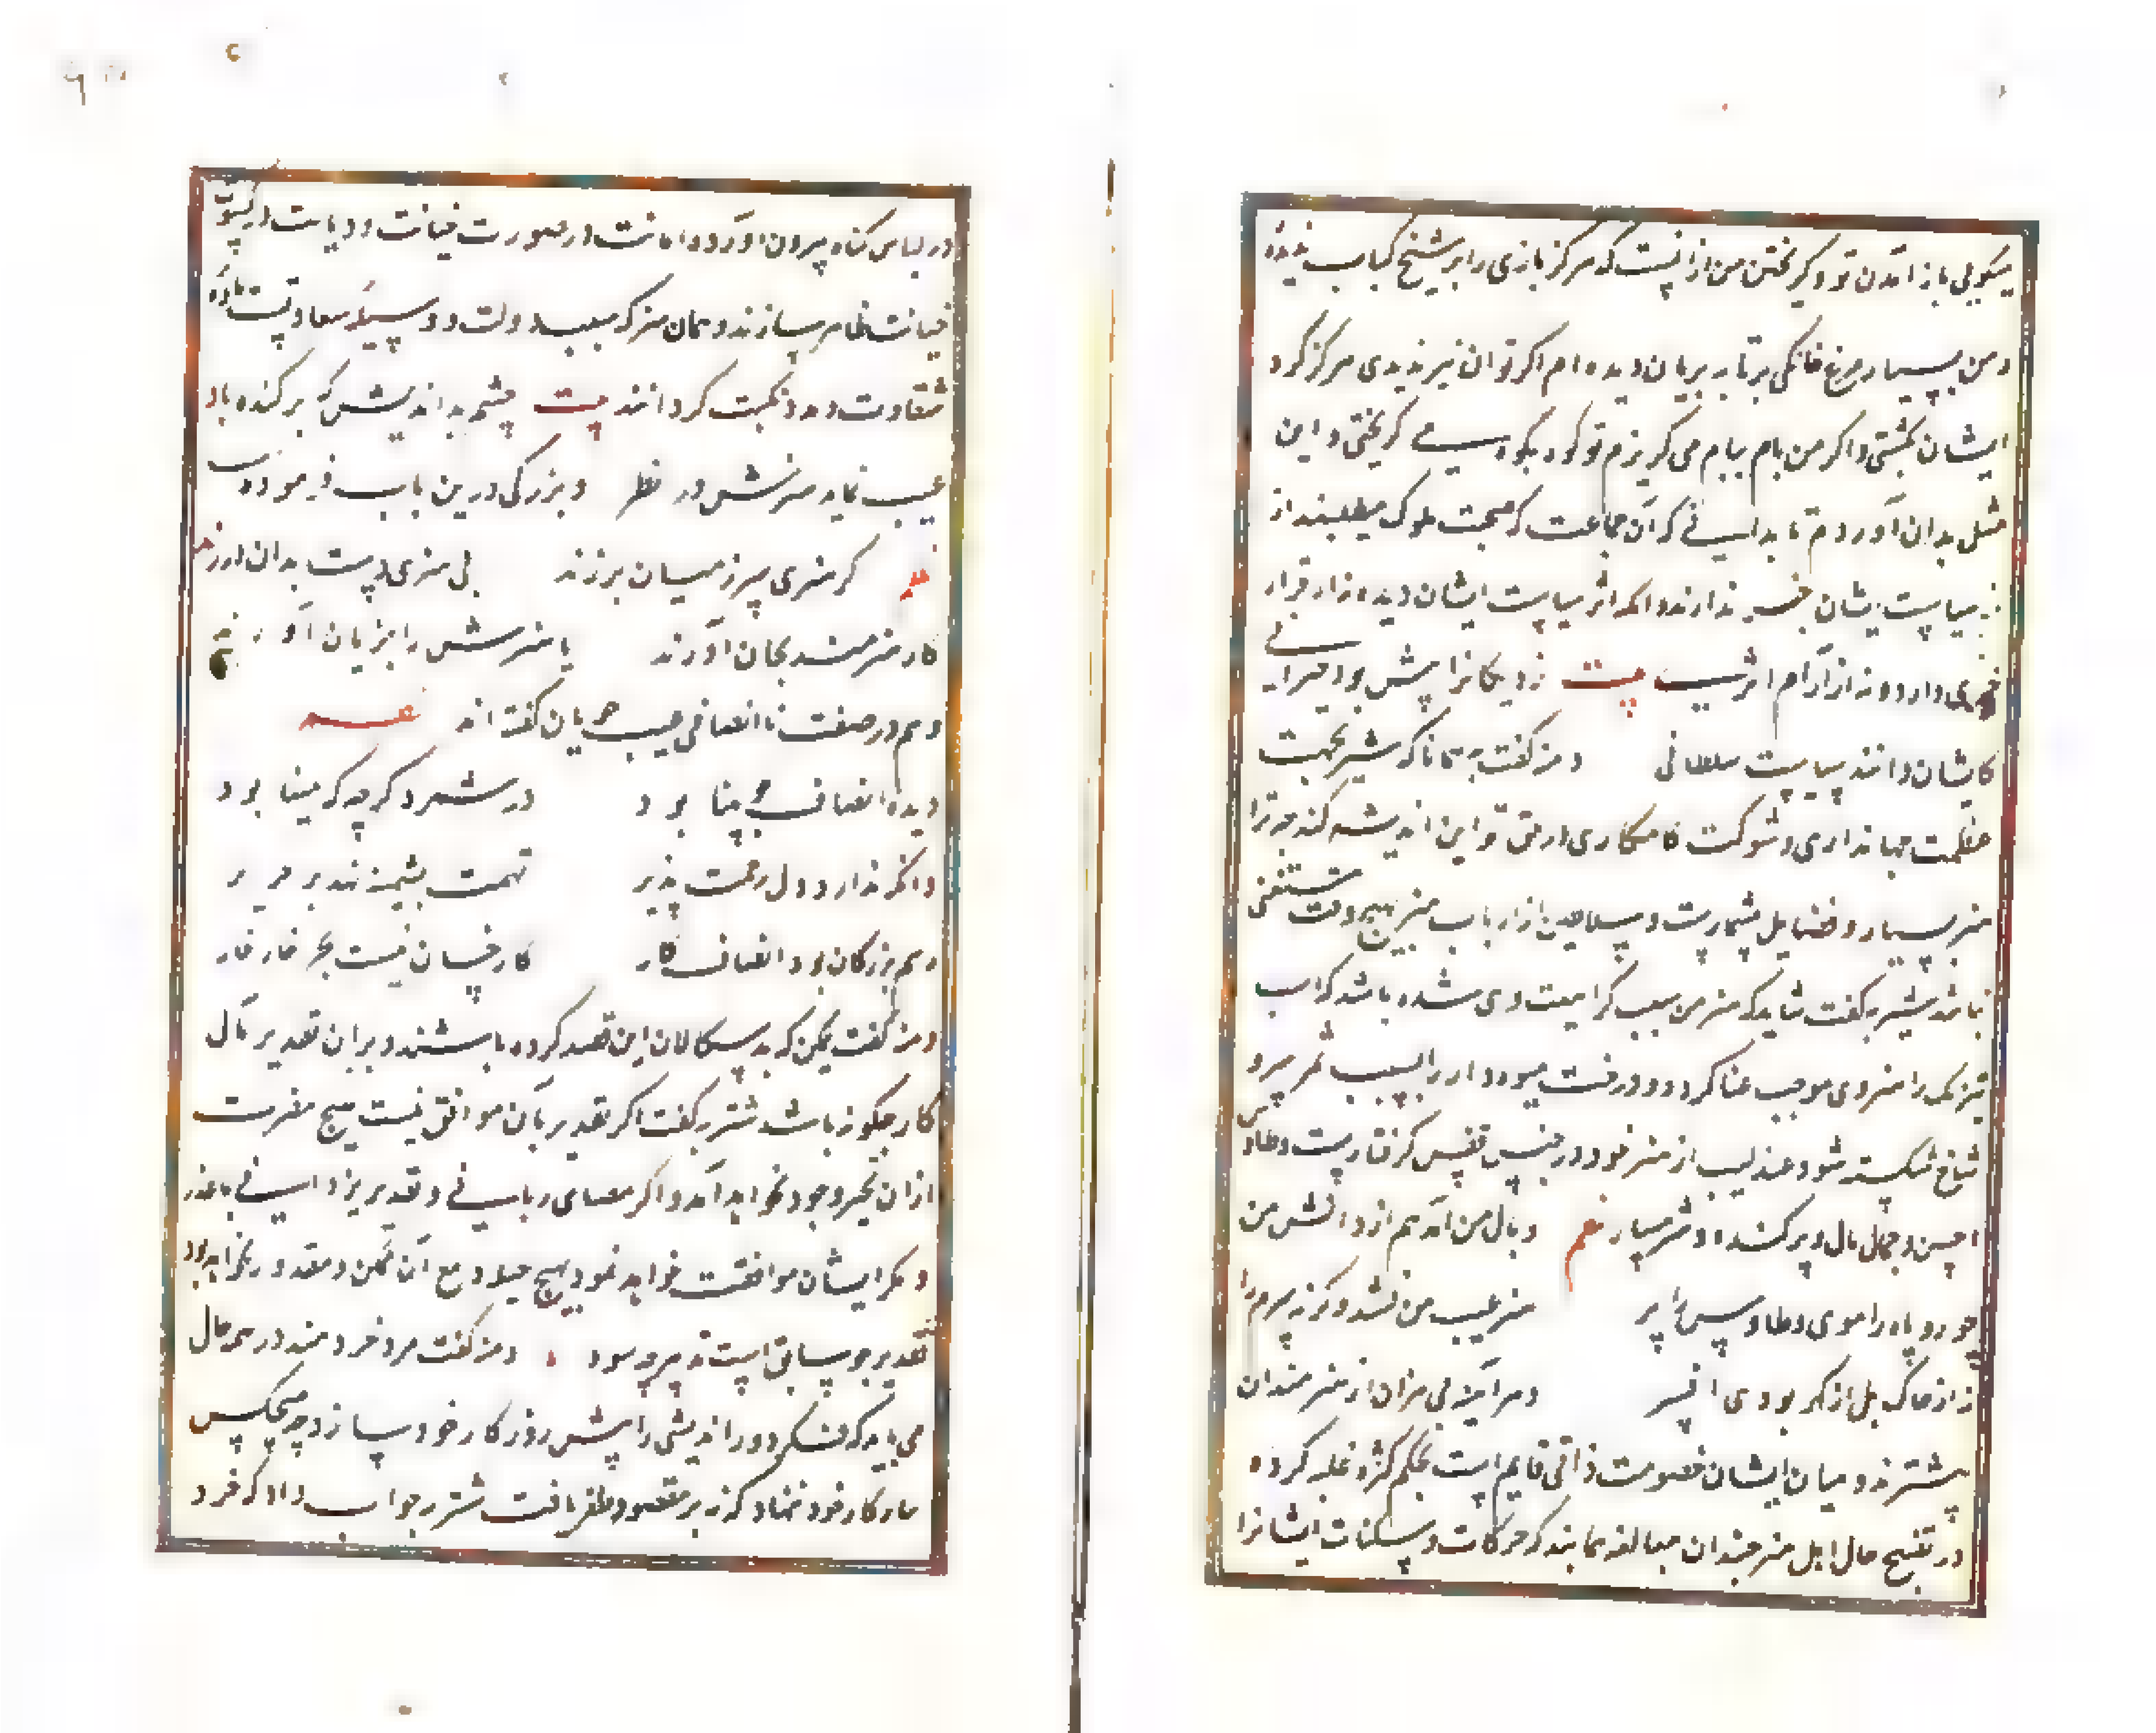 میکویی باز آمدن تو و کریختن من از آنست که هرکز بازی را بر سیخ کباب ندیده
و من بسیار مرغ خانکی بر تابه بریان دیده ام اکر تو آن نیز ندیدی هرکز کرد
ایشان نکشتی و اکر من بام ببام می کریزم تو کوه بکوه می کریختی و این
مثل بدان آوردم تا بدانی که آن جماعت که صحبت ملوک میطلبند از
سیاست ایشان خبر ندارند و آنکه اثر سیاست ایشان دیده نه از قرار
خبری دارد و نه از آرام اثر بیت نزدیکانرا بیش بود حیرانی
کایشان دانند سیاست سلطانی دمنه کفت همانا که شیر بجهت
عظمت جهانداری و شوکت کامکاری در حق تو این اندیشه کند چه ترا
هنر بسیار و فضایل بیشمارست و سلاطین از ارباب هنر بهیچ وقت مستغنی
نباشند شنزبه کفت شاید که هنر من سبب کراهیت وی شده باشد که اسب
تیزتک را هنر وی موجب عنا کردد و درخت میوه دار را بسبب ثمر سر و
شاخ شکسته شود عندلیب از هنر خود در حبس قفس کرفتارست و طاوس
از حسن و جمال بال و پر کنده و شرمسار نظم وبال من آمد هم از دانش من
چو روباه را موی و طاوس را پر هنر عیب من شد و کرنه سرم را
نه از خاک بل از کهر بودی افسر و هر آینه بی هنران از هنرمندان
بیشترند و میان ایشان خصومت ذاتی قایم است بحکم کثرة غلبه کرده
در تقبیح حال اهل هنر چندان مبالغه نمایند که حرکات و سکنات ایشانرا
در لباس کناه بیرون آورده امانت در صورت خیانت و دیانت در کسوت
خیانت ظاهر سازند و همان هنر که سبب دولت و وسیله سعادتست ماده
شقاوت و مدد نکبت کردانند بیت چشم بداندیش که برکنده باد
عیب نماید هنرش در نظر و بزرکی درین باب فرموده است
نظم کر هنری سر ز میان برزند بی هنری دست بدان در زند
کار هنرمند بجان آورند تا هنرش را بزیان آورند
و هم در صفت ناانصافی عیب جویان کفته اند نظم
دیده انصاف چو بینا بود در شمرد کرچه که مینا بود
و آنکه ندارد دل رحمت پذیر تهمت پشمینه نهد بر حریر
رسم بزرکان بود انصاف کار کار خسان نیست بجز خار خار
دمنه کفت یمکن که بدسکالان این قصد کرده باشند و بران تقدیر مآل
کار چکونه باشد شنزبه کفت اکر تقدیر بآن موافق نیست هیچ مضرت
ازان بحیز وجود نخواهد آمد و اکر قضای ربانی و تقدیر یزدانی با غدر
و مکر ایشان موافقت خواهد نمود بهیچ حیله دفع آن ممکن و مقدور نخواهد بود
تقدیر چو سابق است تدبیر چه سود دمنه کفت مرد خردمند در همه حال
می باید که تفکر و دوراندیشی را پیش روز کار خود سازد چه هیچکس
مدار کار خود ننهاد که نه بر مقصود ظفر یافت شنزبه جواب داد که خرد